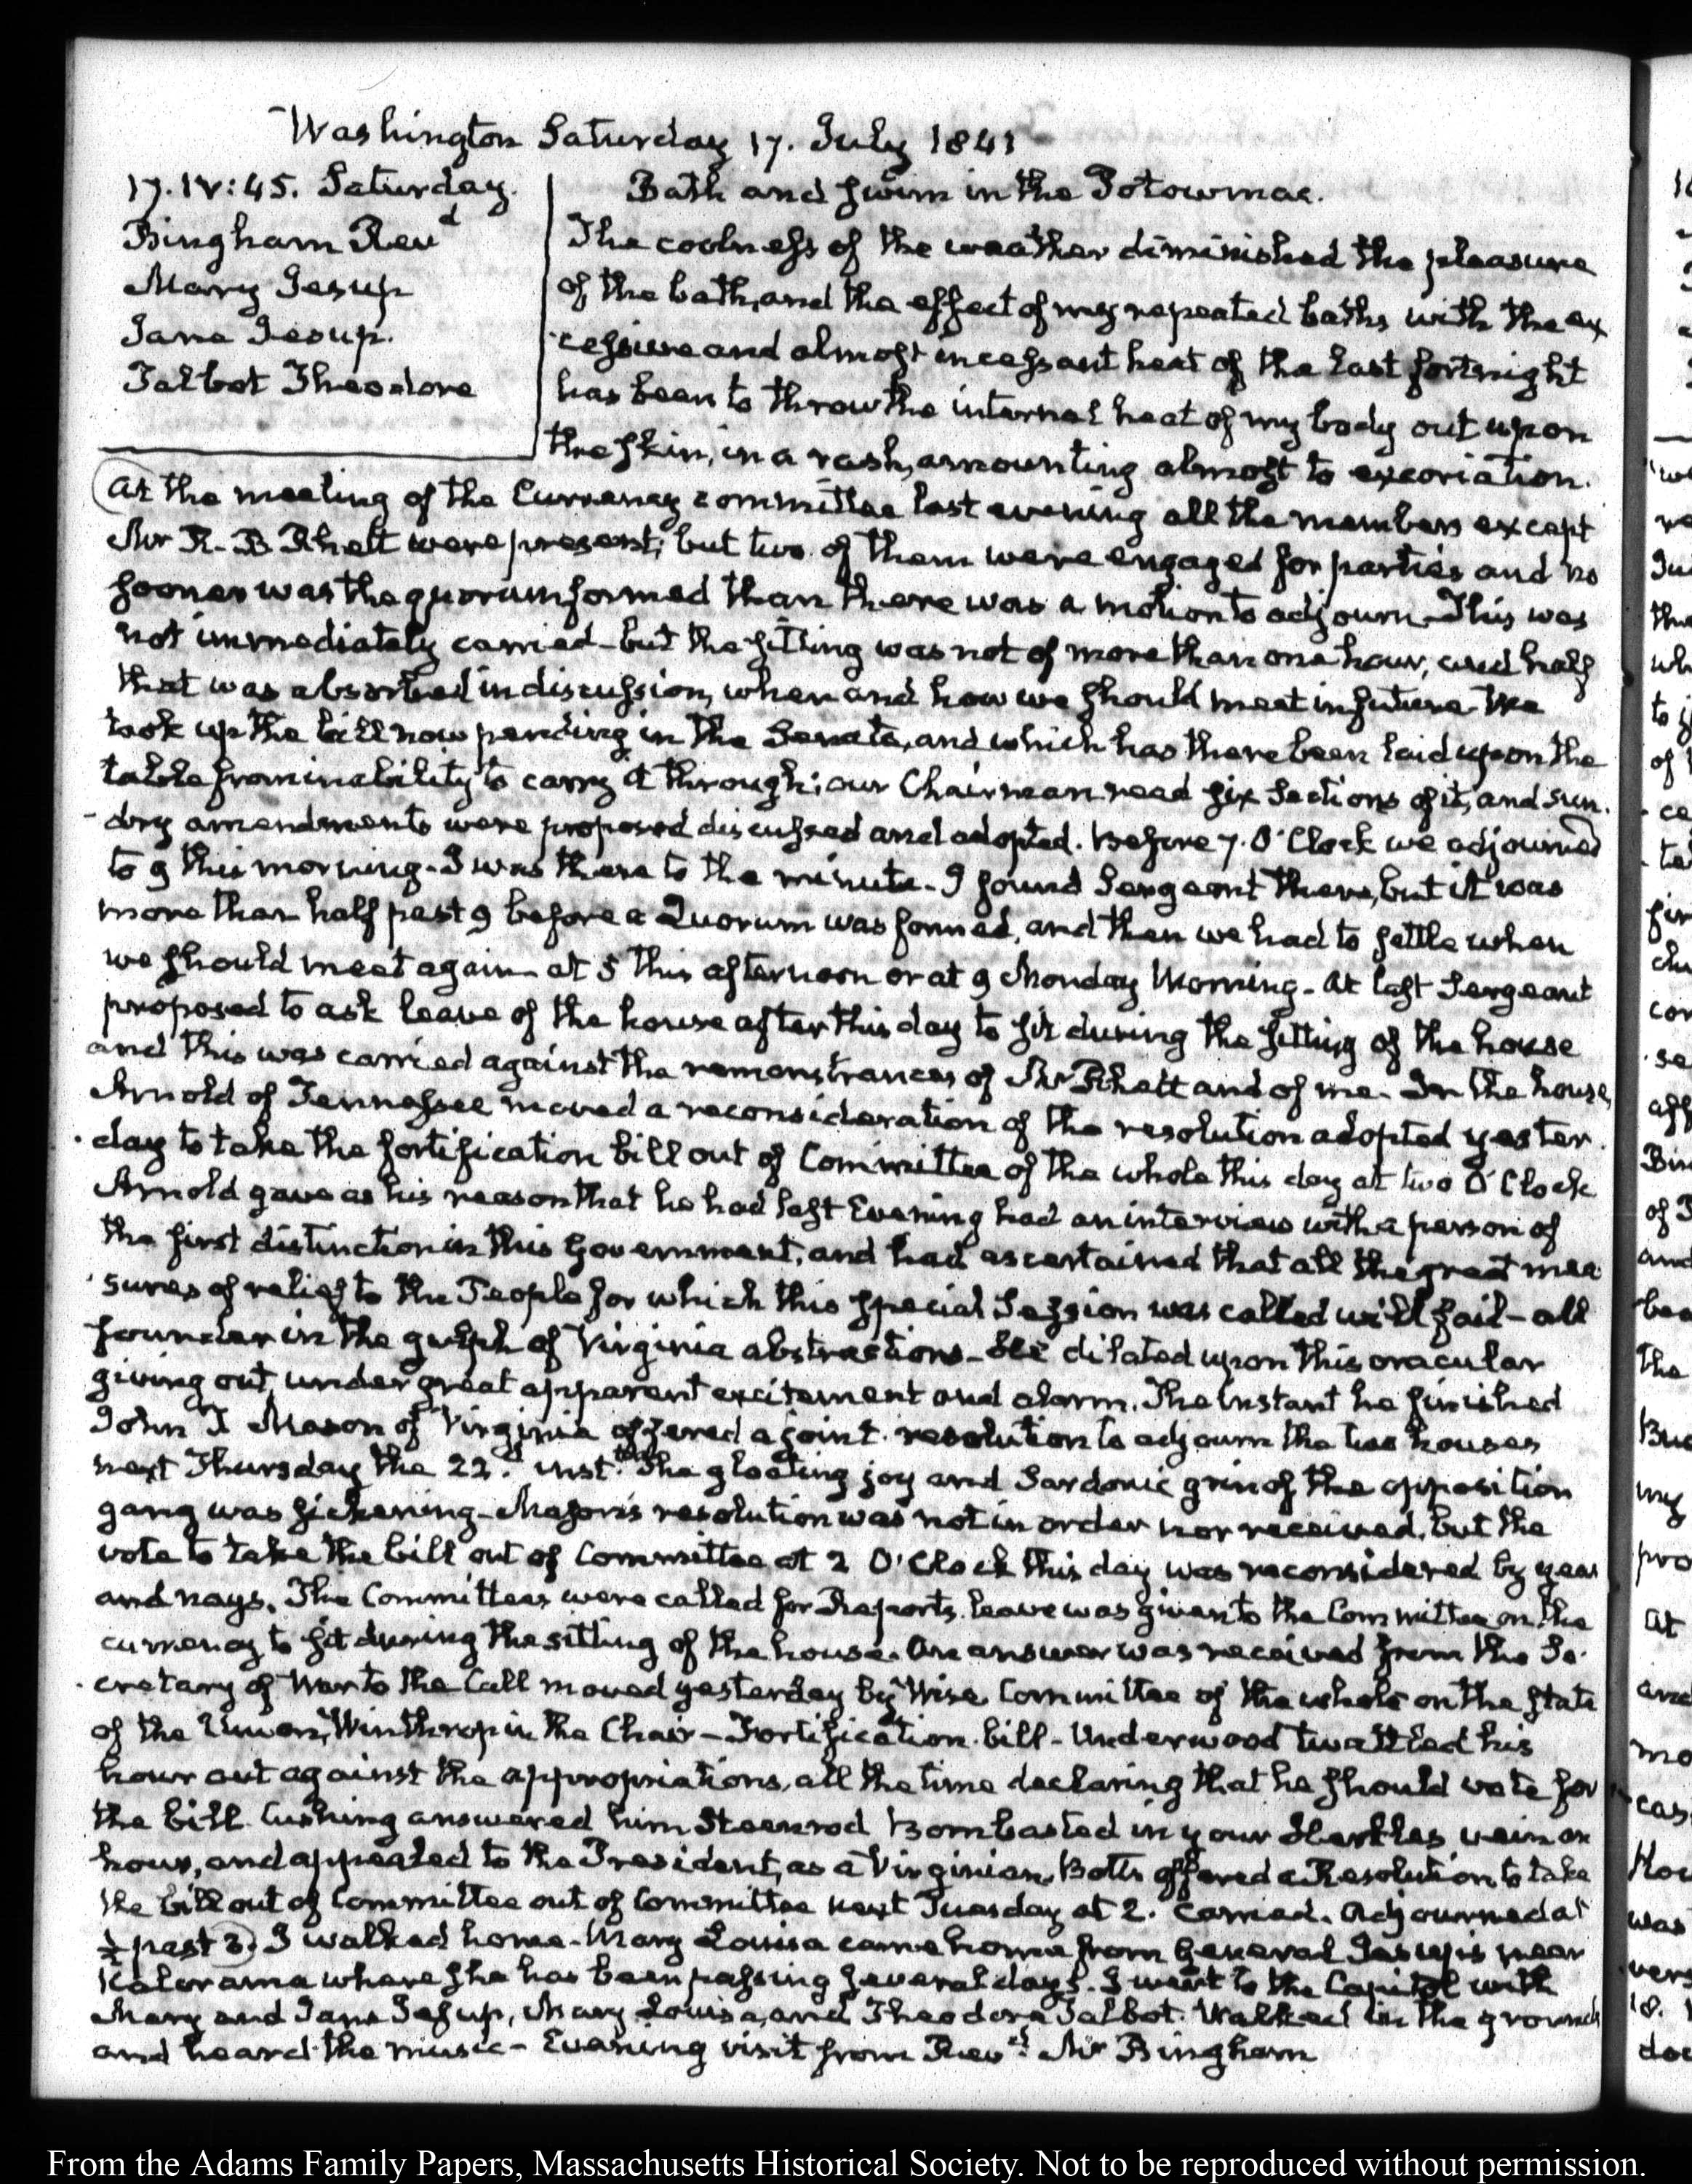 Washington Saturday 17. July 1841
17. IV:45. Saturday.
Bingham Revd
Mary Jesup
Jane Jesup.
Talbot Theodore
Bath and swim in the Potowmac.
The coolness of the weather diminished the pleasure
of the bath, and the effect of my repeated baths, with the ex
cessive and almost incessant heat of the last fortnight
has been to throw the internal heat of my body out upon
the skin, in a rash, amounting almost to excoriation.
At the meeting of the Currency committee last evening all the members except
Mr R. B. Rhett were present; but two of them were engaged for parties and no
sooner was the quorum formed than there was a motion to adjourn—This was
not immediately carried—but the sitting was not of more than one hour, and half
that was absorbed in discussion, when and how we should meet in future. We
took up the bill now pending in the Senate, and which has there been laid upon the
table from inability to carry it through; our Chairman read six Sections of it, and sun.
-dry amendments were proposed discussed and adopted. Before 7. O'Clock we adjourned
to 9 this morning—I was there to the minute—I found Sergeant there, but it was
more than half past 9 before a Quorum was formed, and then we had to settle when
we should meet again—at 5 this afternoon or at 9 Monday Morning—At last Sergeant
proposed to ask leave of the house after this day to sit during the sitting of the house
and this was carried against the remonstrances of Mr Rhett and of me—In the house,
Arnold of Tennessee moved a reconsideration of the resolution adopted yester.
·day to take the fortification bill out of Committee of the whole this day at two O'Clock
Arnold gave as his reason that he had last Evening had an interview with a person of
the first distinction in this Government, and had ascertained that all the great mea
·sures of relief to the People for which this special Session was called will fail—all
founder in the gulph of Virginia abstractions—He dilated upon this oracular
giving out, under great apparent excitement and alarm. The instant he finished
John T Mason of Virginia offered a joint resolution to adjourn the two houses
next Thursday the 22d. inst. The gloating joy and Sardonic grin of the opposition
gang was sickening—Mason's resolution was not in order nor received, but the
vote to take the bill out of Committee at 2 O'Clock this day was reconsidered by yeas
and nays. The Committees were called for Reports. leave was given to the Committee on the
currency to sit during the sitting of the house. An answer was received from the Se·
·cretary of War to the Call moved yesterday by Wise. Committee of the whole on the state
of the Union, Winthrop in the Chair—Fortification bill—Underwood twattled his
hour out against the appropriations, all the time declaring that he should vote for
the bill. Cushing answered him Steenrod Bombasted in your Herkles vein an
hour, and appealed to the President, as a Virginian. Botts offered a Resolution to take
the bill out of Committee out of Committee next Tuesday at 2. Carried. Adjourned at
½ past 3. I walked home—Mary Louisa came home from General Jesup's near
Kalorama where she has been passing several days. I went to the Capitol with
Mary and Jane Jesup, Mary Louisa, and Theodore Talbot. Walked in the grounds
and heard the music—Evening visit from Revd. Mr Bingham
From the Adams Family Papers, Massachusetts Historical Society. Not to be reproduced without permission.